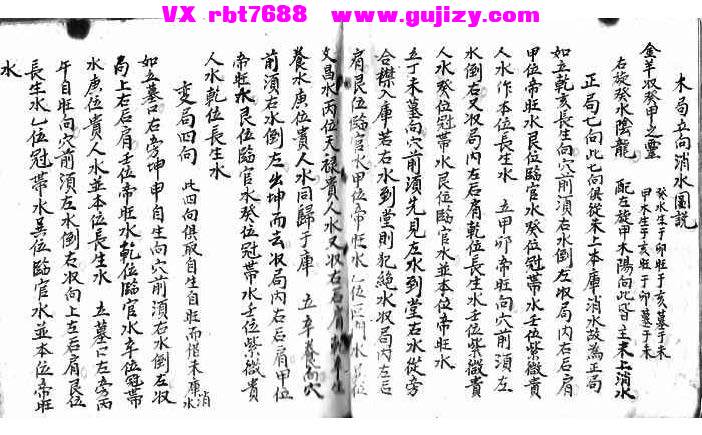 VX rbt7688  www.gujizy.com
木局立向消水圖説
金羊收癸甲之靈 癸水生于卯旺于亥墓于未 甲木生于亥旺于卯墓于未
右旋癸水陰龍 配左旋甲木陽向此皆主未上消水
正局七向此七向俱從未上本庫消水故為正局
如立乾亥長生向穴前須右水倒左收局内右后肩
甲位帝旺水艮位臨官水癸位冠帶水壬位紫微貴
人水作本位長生水 立甲卯帝旺向穴前須左
水倒右又收局内左后肩乾位長生水壬位紫微貴
人水癸位冠帶水艮位臨官水並本位帝旺水
立丁未墓向穴前須先見左水到堂右水從旁
合襟入庫若右水到堂則犯絶水收局内左后
肩艮位臨官水甲位帝旺水乙位
文昌水丙位天禄貴人水又收右后肩
養水庚位貴人水同歸于庫 立辛養向穴
前須右水倒左出坤而去收局内右后肩甲位
帝旺水艮位臨官水癸位冠帶水壬位紫微貴
人水乾位長生水
變局四向 此四向俱取自生自旺而借未庫消水
如立墓口右旁坤申自生向穴前須右水倒左收
局上右后肩壬位帝旺水乾位臨官水辛位冠帶
水庚位貴人水並本位長生水 立墓口左旁丙
午自旺向穴前須左水倒右收向上左后肩艮位
長生水乙位冠帶水巽位臨官水並本位帝旺
水